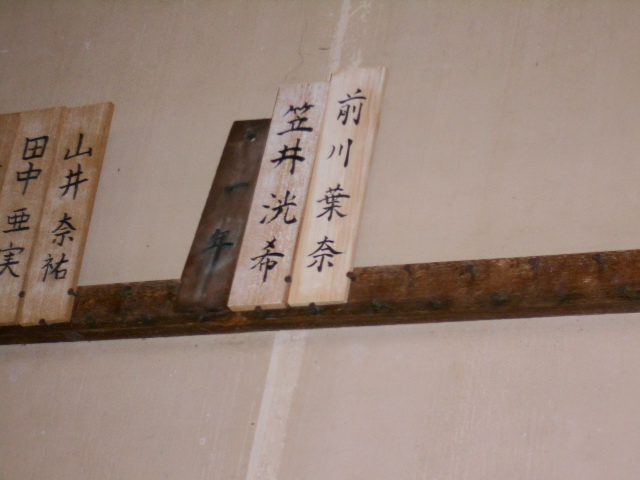 前川葉奈
笠井洸希
一年
山井奈祐
田中亜実